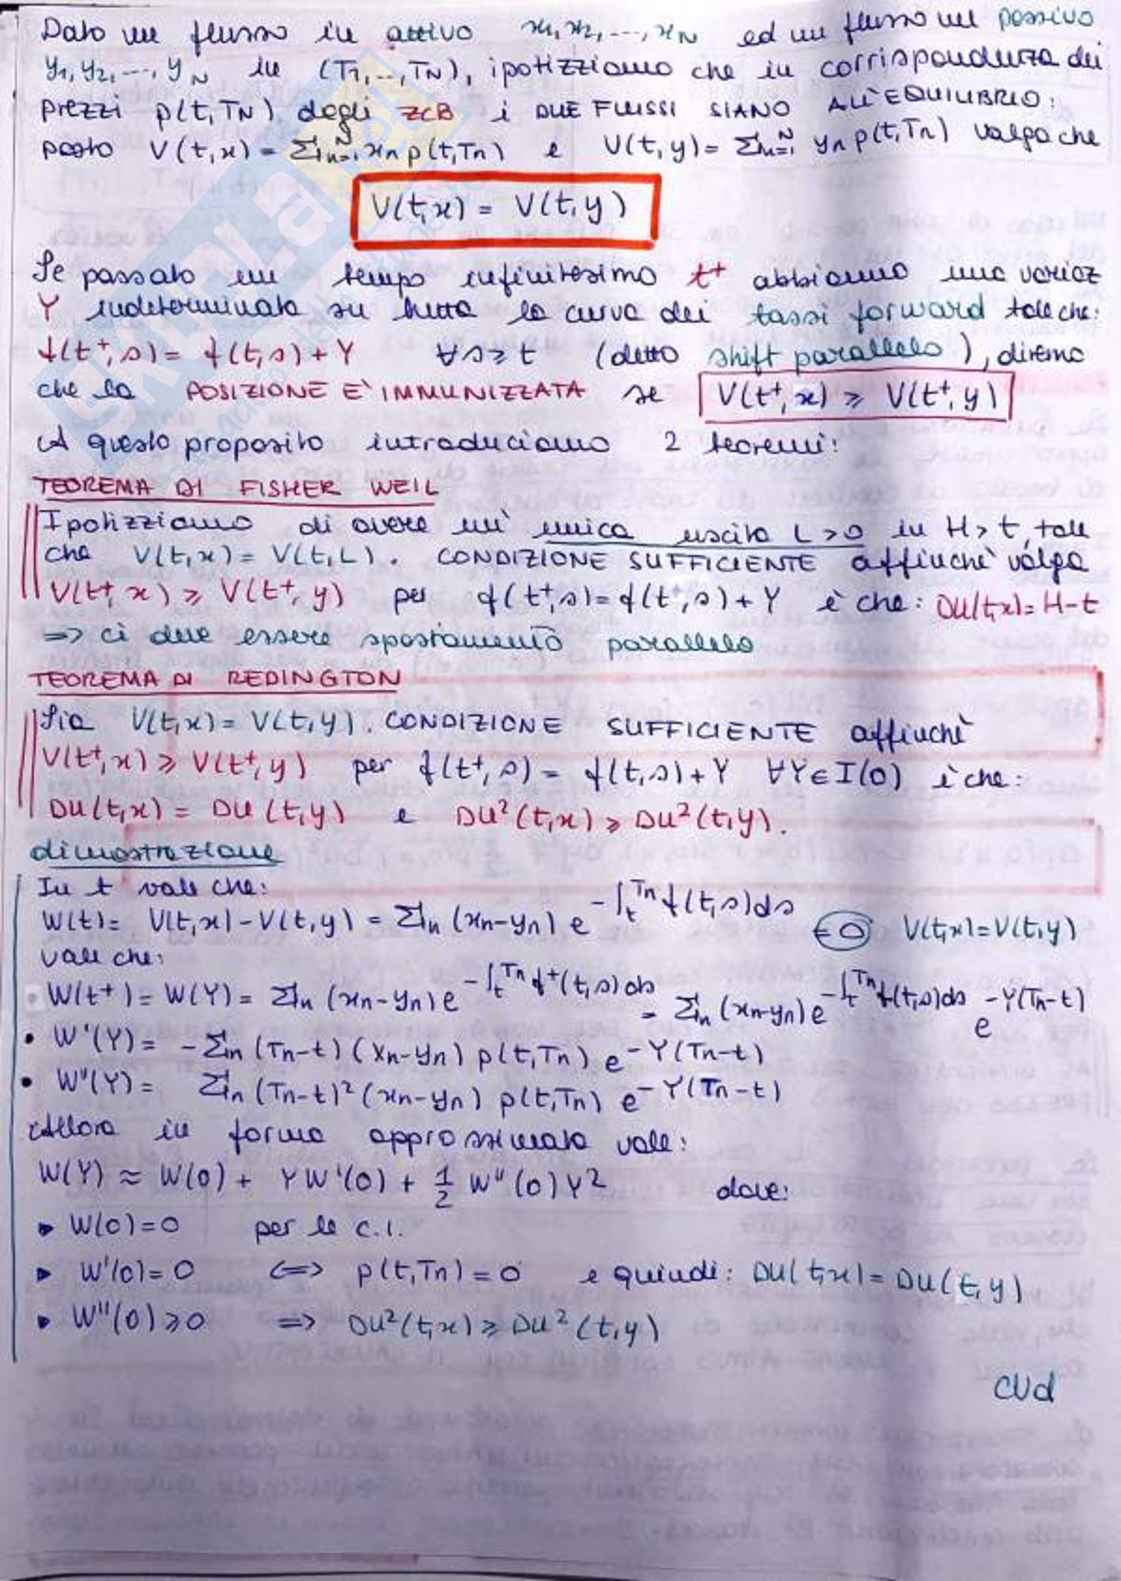 Dato un flusso in attivo x₁,x₂,...,x_N ed un flusso nel passivo
y₁,y₂,...,y_N in (T₁,..,T_N), ipotizziamo che in corrispondenza dei
prezzi p(t,T_N) degli ZCB i DUE FLUSSI SIANO ALL'EQUILIBRIO:
posto V(t,x) = Σ_{n=1}^N x_n p(t,T_n) e V(t,y) = Σ_{n=1}^N y_n p(t,T_n) valga che
V(t,x) = V(t,y)
Se passato un tempo infinitesimo t⁺ abbiamo una variaz
Y indeterminata su tutta la curva dei tassi forward tale che:
f(t⁺,s) = f(t,s) + Y ∀s≥t (detto shift parallelo), diremo
che la POSIZIONE E' IMMUNIZZATA se V(t⁺,x) ≥ V(t⁺,y)
A questo proposito introduciamo 2 teoremi:
TEOREMA DI FISHER WEIL
Ipotizziamo di avere un' unica uscita L>0 in H>t, tale
che V(t,x) = V(t,L). CONDIZIONE SUFFICIENTE affinchè valga
V(t⁺,x) ≥ V(t⁺,y) per f(t⁺,s) = f(t⁺,s) + Y è che: DU(t,x) = H-t
=> ci deve essere spostamento parallelo
TEOREMA DI REDINGTON
Sia V(t,x) = V(t,y). CONDIZIONE SUFFICIENTE affinchè
V(t⁺,x) ≥ V(t⁺,y) per f(t⁺,s) = f(t,s) + Y ∀Y∈I(0) è che:
DU(t,x) = DU(t,y) e DU²(t,x) ≥ DU²(t,y).
dimostrazione
In t vale che:
W(t) = V(t,x) - V(t,y) = Σ_n (x_n-y_n) e^{-∫_t^{T_n} f(t,s)ds} = 0 V(t,x)=V(t,y)
vale che:
• W(t⁺) = W(Y) = Σ_n (x_n-y_n) e^{-∫_t^{T_n} f⁺(t,s)ds} = Σ_n (x_n-y_n) e^{-∫_t^{T_n} f(t,s)ds} e^{-Y(T_n-t)}
• W'(Y) = -Σ_n (T_n-t) (x_n-y_n) p(t,T_n) e^{-Y(T_n-t)}
• W''(Y) = Σ_n (T_n-t)² (x_n-y_n) p(t,T_n) e^{-Y(T_n-t)}
Allora in forma approssimata vale:
W(Y) ≈ W(0) + YW'(0) + 1/2 W''(0)Y² dove:
▸ W(0)=0 per le c.i.
▸ W'(0)=0 <=> p(t,T_n)=0 e quindi: DU(t,x) = DU(t,y)
▸ W''(0)≥0 => DU²(t,x) ≥ DU²(t,y)
CVd